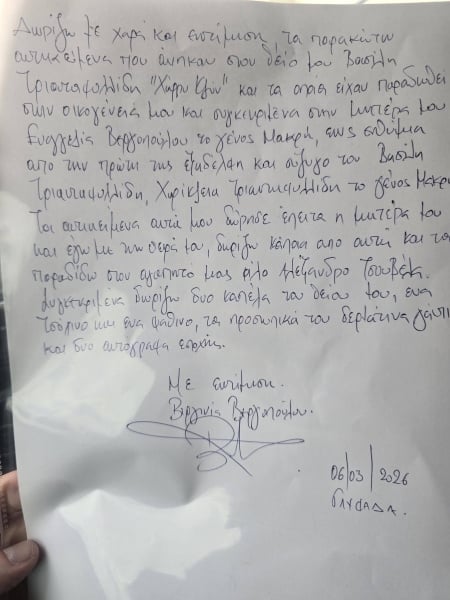 Δωρίζω με χαρά και εκτίμηση, τα παρακάτω
αντικείμενα που άνηκαν στον θείο μου Βασίλη
Τριανταφυλλίδη "Χάρρυ Κλυν" και τα οποία είχαν παραδωθεί
στην οικογένεια μου και συγκεκριμένα στην μητέρα μου
Ευαγγελία Βεργοπούλου το γένος Μακρή, ως ενθύμια
απο την πρώτη της εξαδέλφη και σύζυγο του Βασίλη
Τριανταφυλλίδη, Χαρίκλεια Τριανταφυλλίδη το γένος Μακρή
Τα αντικείμενα αυτά μου δώρησε έπειτα η μητέρα μου
και εγώ με την σειρά μου, δωρίζω κάποια απο αυτά και τα
παραδίδω στον αγαπητό μας φίλο Αλέξανδρο Τσουβέλα.
Συγκεκριμένα δωρίζω δυο καπέλα του θείου μου, ένα
τσόχινο και ένα ψάθινο, τα προσωπικά του δερμάτινα γάντια
και δυο αυτόγραφα εποχής.
Με εκτίμηση.
Βιργινία Βεργοπούλου.
06/03/2026
ΓΛΥΦΑΔΑ.